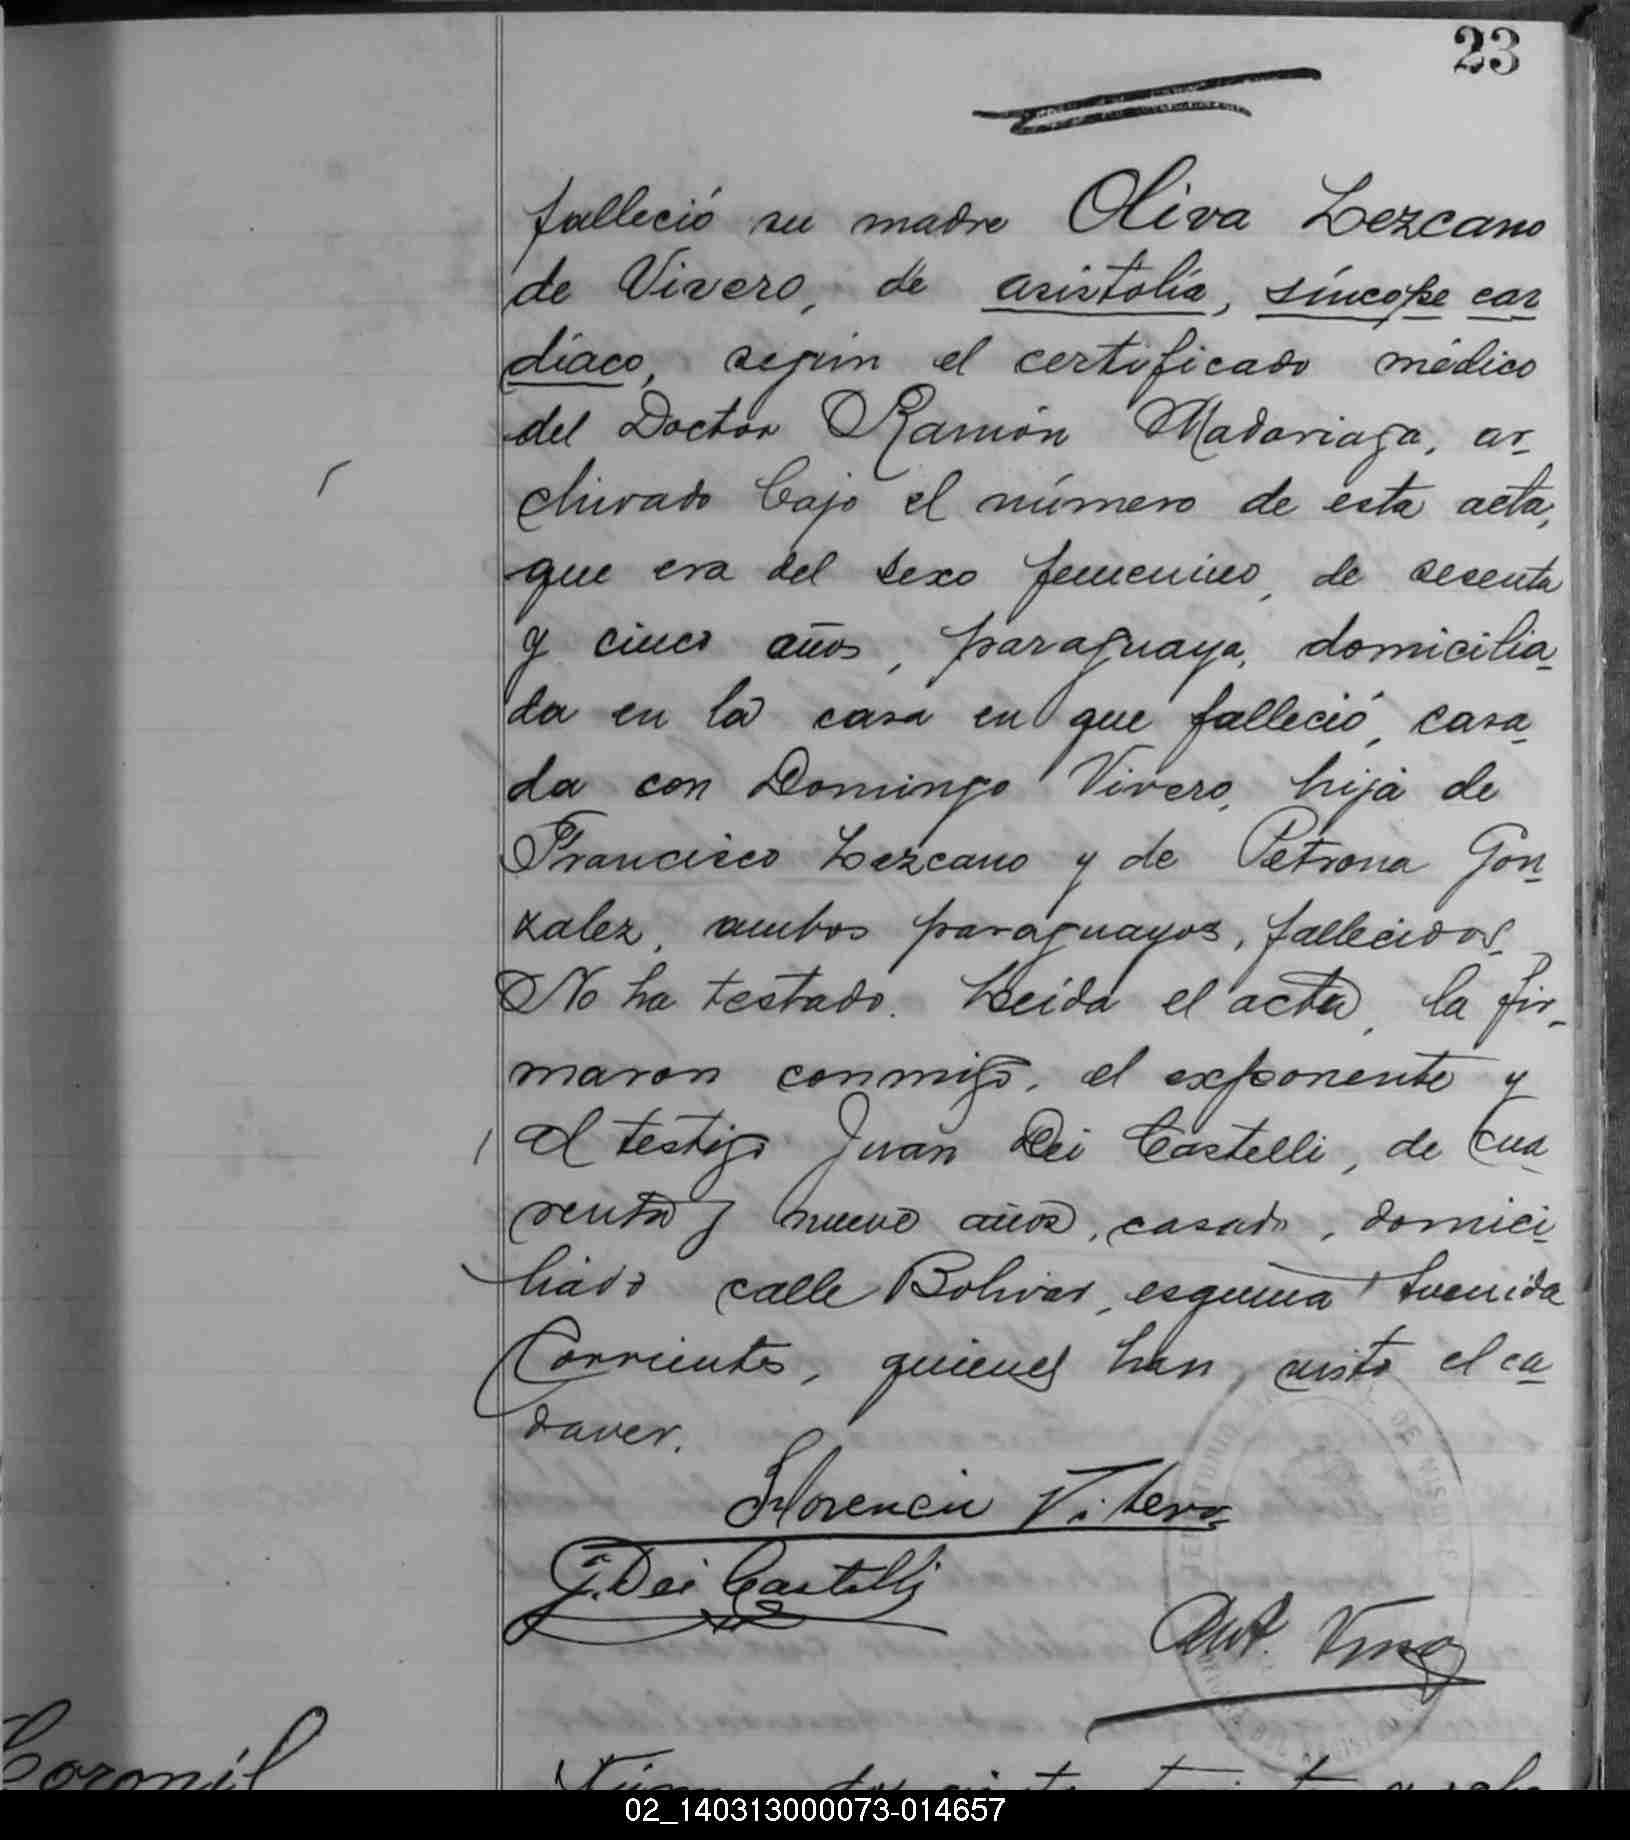 23
falleció su madre Oliva Lezcano
de Vivero, de asistolía, síncope car
díaco, según el certificado médico
del Doctor Ramón Madariaga, ar-
chivado bajo el número de esta acta,
que era del sexo femenino, de sesenta
y cinco años, paraguaya, domicilia-
da en la casa en que falleció, casa-
da con Domingo Vivero, hija de
Francisco Lezcano y de Petrona Gon-
zalez, ambos paraguayos, fallecidos.
No ha testado. Leida el acta, la fir-
maron conmigo, el exponente y
el testigo Juan Dei Castelli, de cua-
renta y nueve años, casado, domici-
liado calle Bolivar, esquina Avenida
Corrientes, quienes han visto el ca-
daver.
Florencio Vivero
J. Dei Castelli
Coronil
02_140313000073-014657